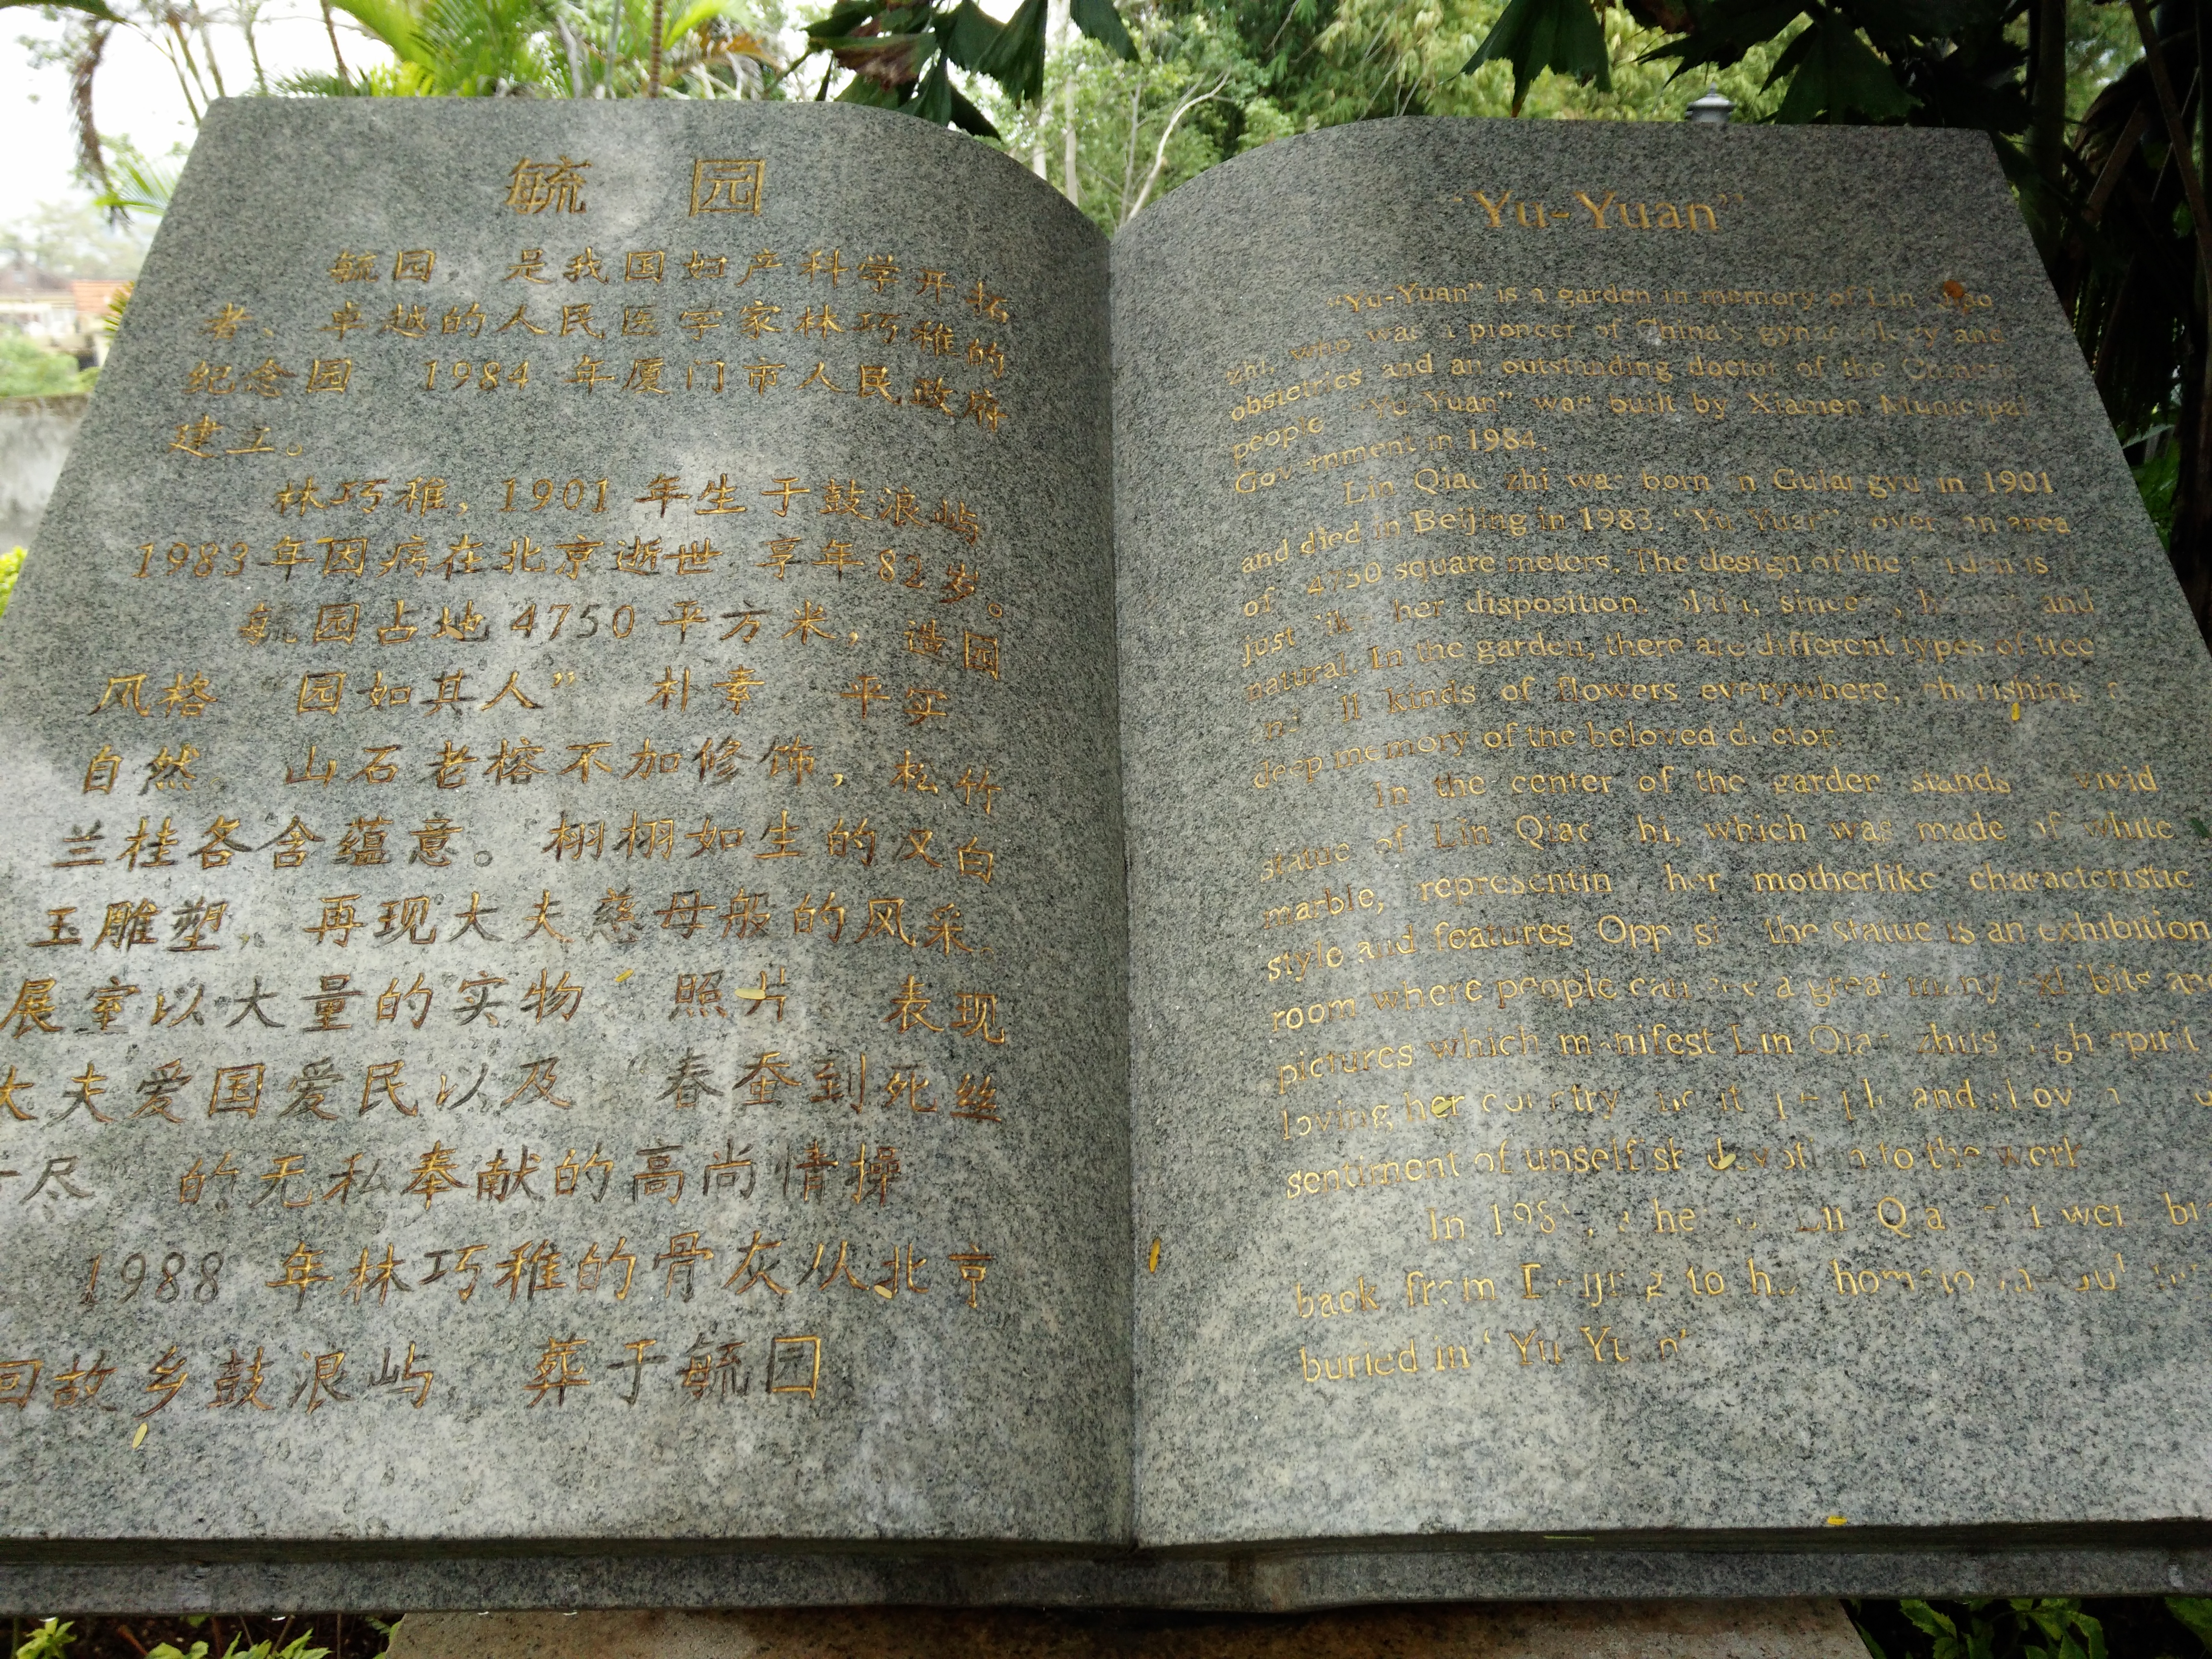 毓 园
毓园 是我国妇产科学开拓
者、卓越的人民医学家林巧稚的
纪念园 1984 年厦门市人民政府
建立。
林巧稚，1901 年生于鼓浪屿
1983年因病在北京逝世 享年82岁。
毓园占地4750平方米，造园
风格 园如其人” 朴素 平实
自然 山石老榕不加修饰，松竹
兰桂各含蕴意。栩栩如生的汉白
玉雕塑，再现大夫慈母般的风采
展室以大量的实物 照片 表现
大夫爱国爱民以及“春蚕到死丝
方尽 的无私奉献的高尚情操
1988 年林巧稚的骨灰从北京
回故乡鼓浪屿 葬于毓园
“Yu-Yuan”
“Yu-Yuan” is a garden in memory of Lin
zhi, who was a pioneer of China's gynaecology and
obstetrics and an outstanding doctor of the Chinese
people “Yu-Yuan” was built by Xiamen Municipal
Government in 1984.
Lin Qiao zhi was born in Gulangyu in 1901
and died in Beijing in 1983. “Yu Yuan” cover an area
of 4750 square meters. The design of the garden is
just like her disposition. plain, sincere, and
natural. In the garden, there are different types of tree
and all kinds of flowers everywhere, cherishing a
deep memory of the beloved doctor.
In the center of the garden stands vivid
statue of Lin Qiao zhi, which was made of white
marble, representing her motherlike characteristic
style and features Opposite the statue is an exhibition
room where people can see a great many exhibits and
pictures which manifest Lin Qiao zhiis high spirit
loving her country and
sentiment of unselfish devotion to the work
In Lin Qiao zhi were
back from Beijing to her hometown
buried in “Yu Yuan”